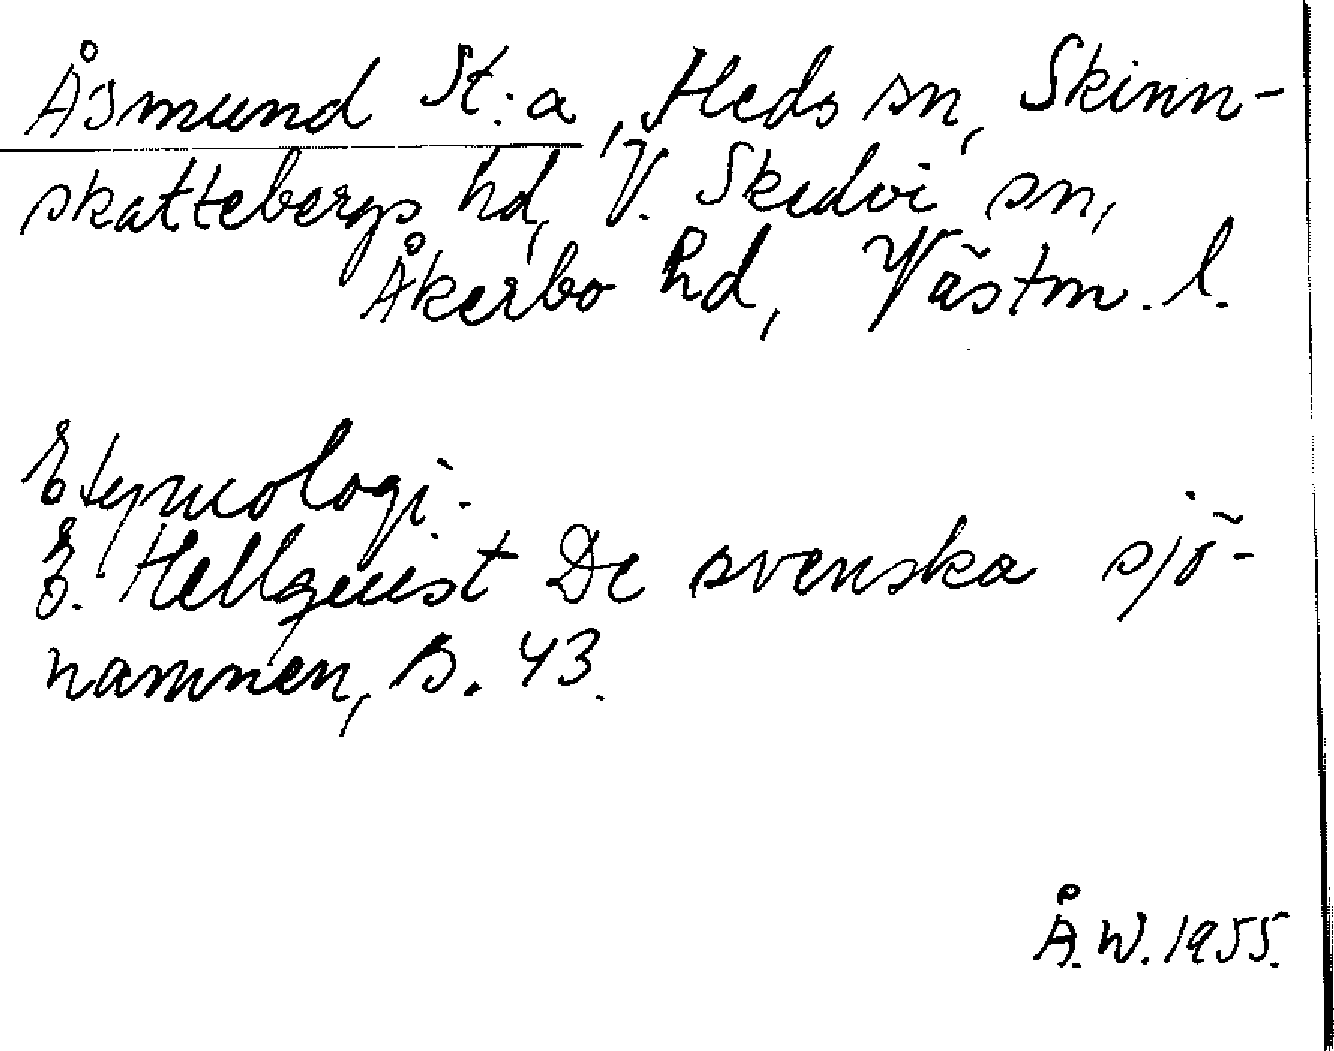 Åsmund St:a, Heds sn, Skinn-
skattebergs hd, V. Skedvi sn,
Åkerbo hd, Västm. l.
Etymologi.
E. Hellquist De svenska sjö-
namnen, s. 43.
Å.W. 1955.